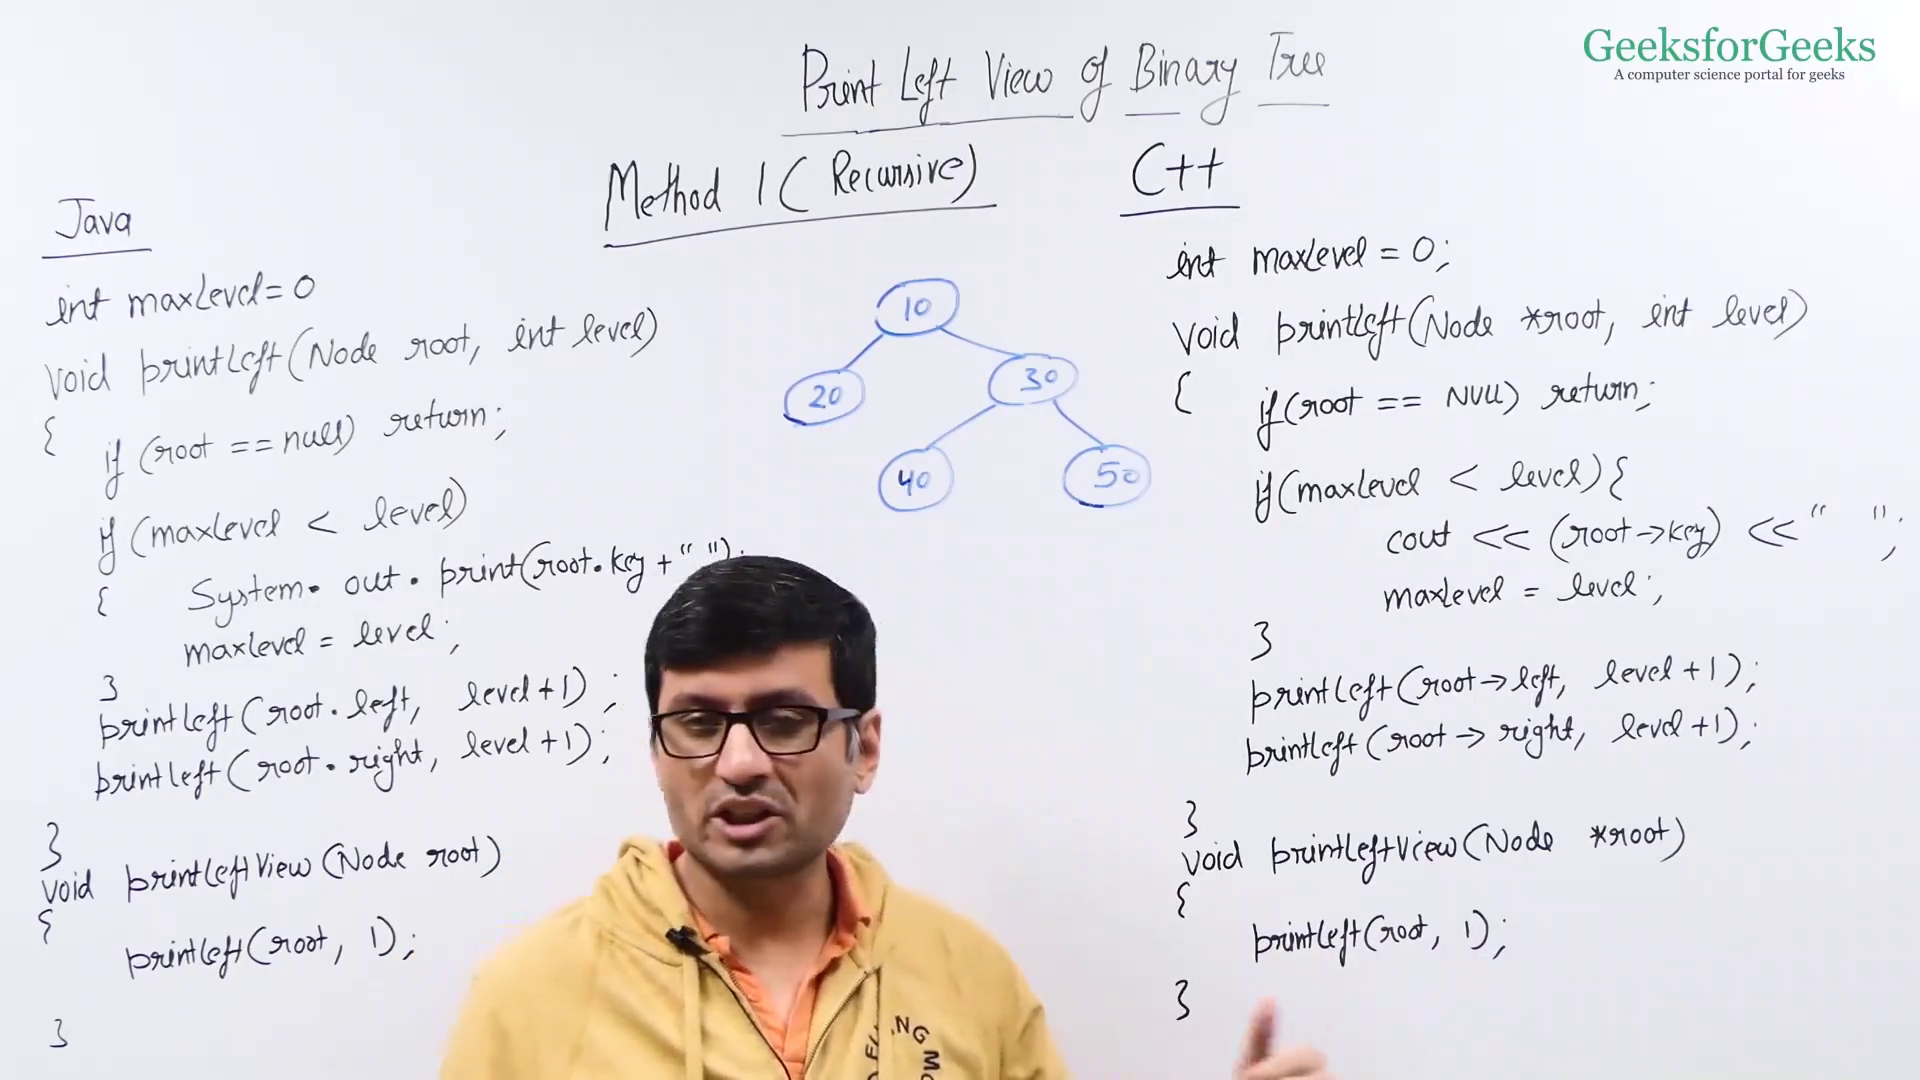 GeeksforGeeks
A computer science portal for geeks
Print Left View of Binary Tree
Method 1 (Recursive)
Java
int maxLevel=0
void printLeft(Node root, int level)
{
if (root == null) return;
if (maxLevel < level)
{ System.out.print(root.key + " ");
maxLevel = level;
}
printLeft(root.left, level+1);
printLeft(root.right, level+1);
}
void printLeftView(Node root)
{
printLeft(root, 1);
}
10
20
30
40
50
C++
int maxLevel = 0;
void printLeft(Node *root, int level)
{
if(root == NULL) return;
if(maxLevel < level){
cout << (root->key) << " ";
maxLevel = level;
}
printLeft(root->left, level+1);
printLeft(root->right, level+1);
}
void printLeftView(Node *root)
{
printLeft(root, 1);
}